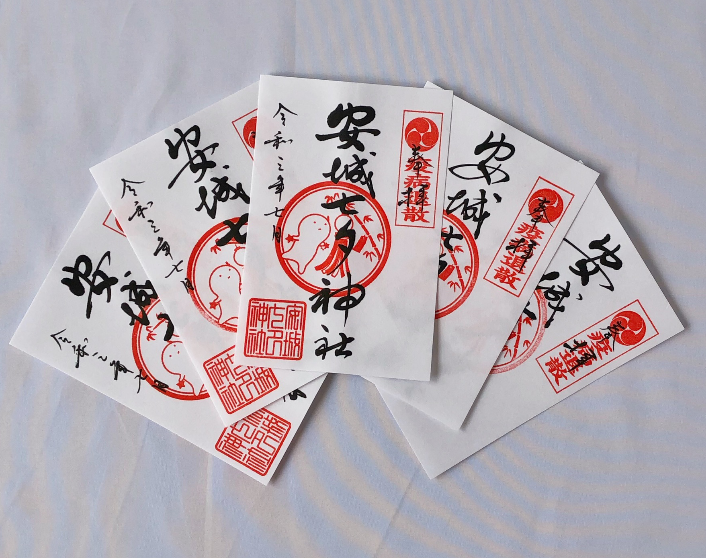 奉拝
疫病退散
安城七夕神社
令和三年七月
安城
七夕
神社
安城七
令和三年七月
安城
令和三年七月
安城七夕
奉拝
疫病退散
安城
奉拝
疫病退散